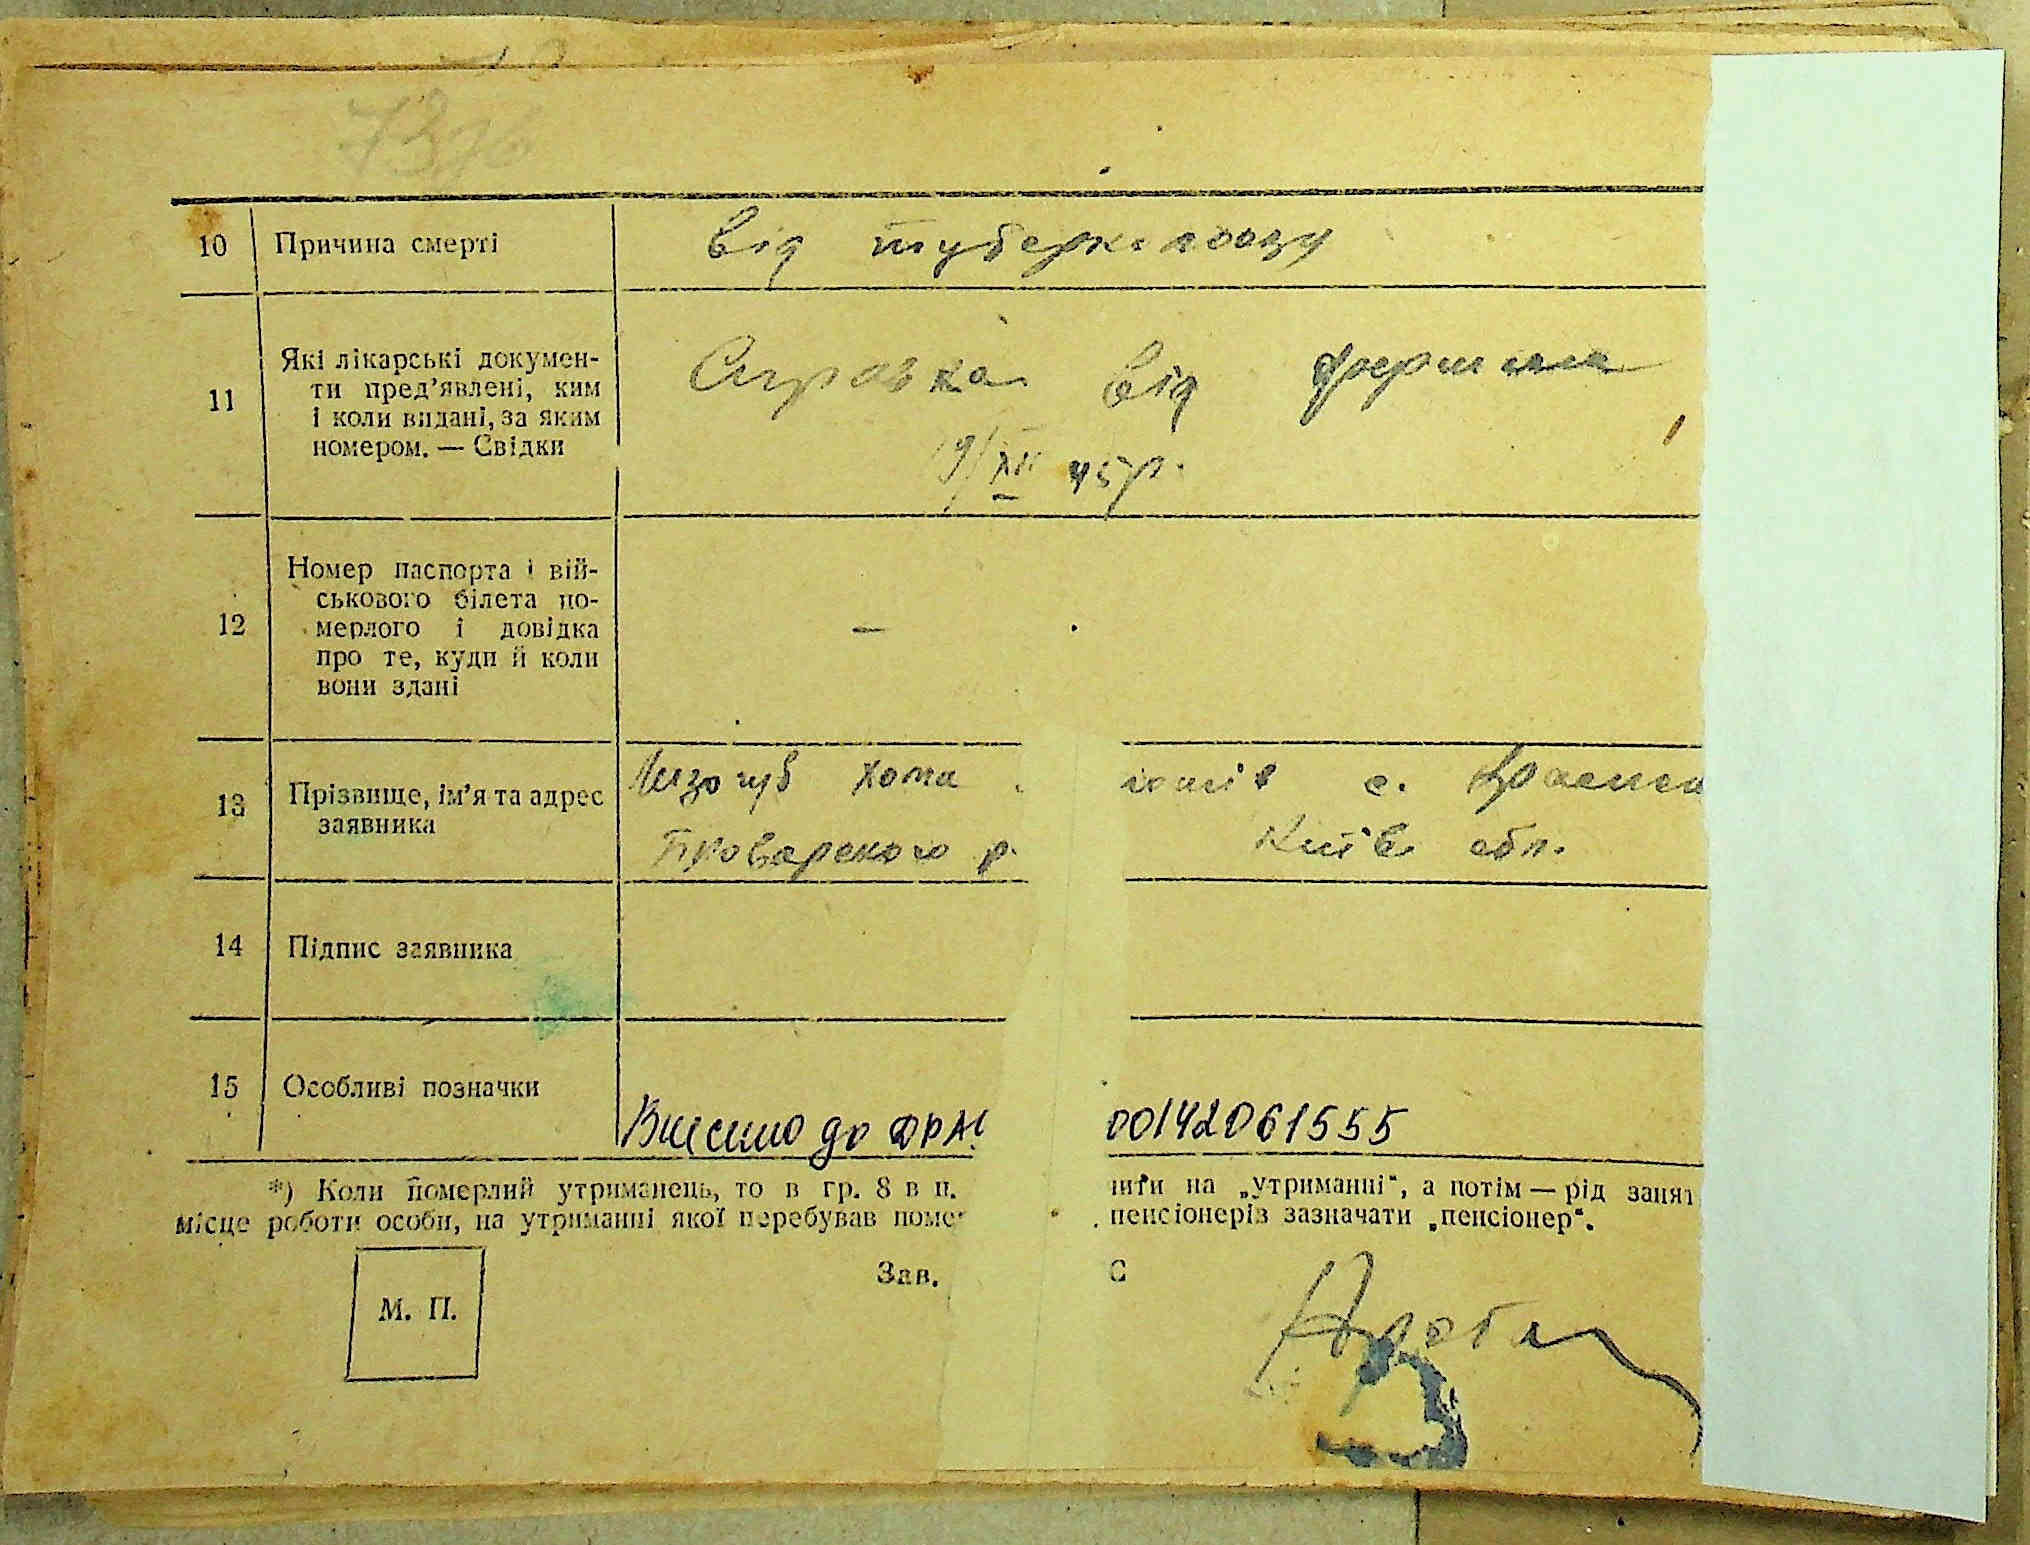 10 Причина смерті від туберкльозу
11 Які лікарські докумен-
ти пред’явлені, ким
і коли видані, за яким
номером. — Свідки
Справка від фершала
19/XII 45р.
12 Номер паспорта і вій-
ськового білета по-
мерлого і довідка
про те, куди й коли
вони здані
—
13 Прізвище, ім’я та адрес
заявника
Лизогуб Хома с.
Броварского р. Київ обл.
14 Підпис заявника
15 Особливі позначки
Внесено до ДРАЦ 00142061555
*) Коли померлий утриманець, то в гр. 8 в п. на „утриманні“, а потім — рід
місце роботи особи, на утриманні якої перебував пенсіонерів зазначати „пенсіонер“.
Зав. С
М. П.